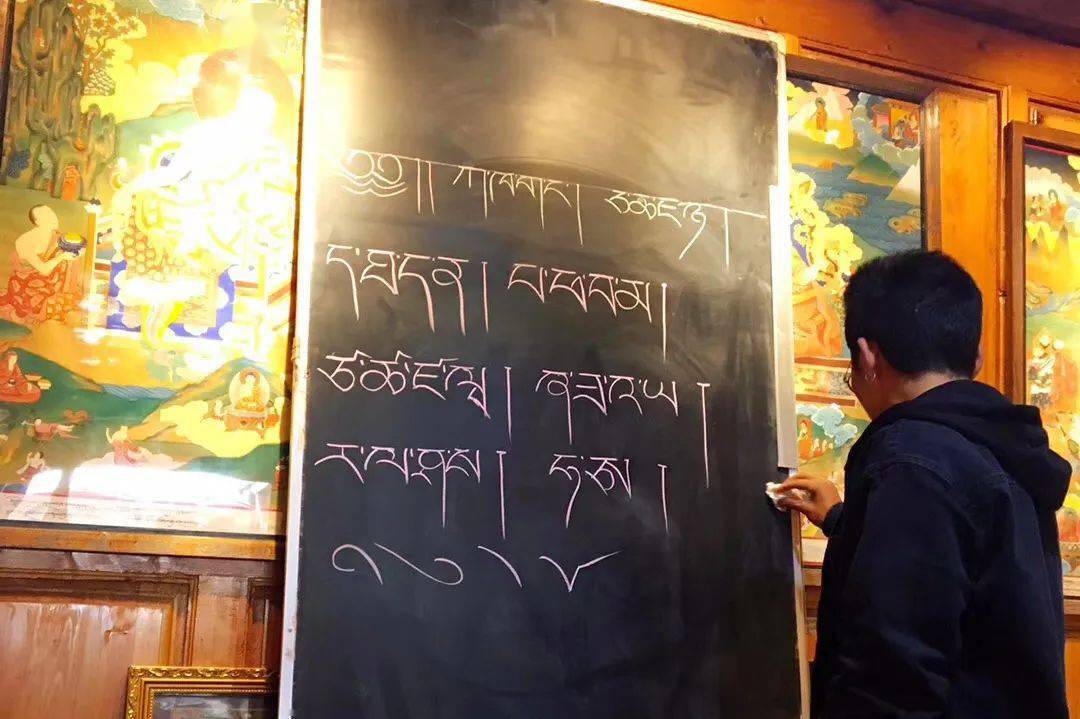 ༄༅།། ཀ་ཁ་ག་ང་། ཅ་ཆ་ཇ་ཉ།
ཏ་ཐ་ད་ན། པ་ཕ་བ་མ།
ཙ་ཚ་ཛ་ཝ། ཞ་ཟ་འ་ཡ།
ར་ལ་ཤ་ས། ཧ་ཨ།
ི ུ ེ ོ